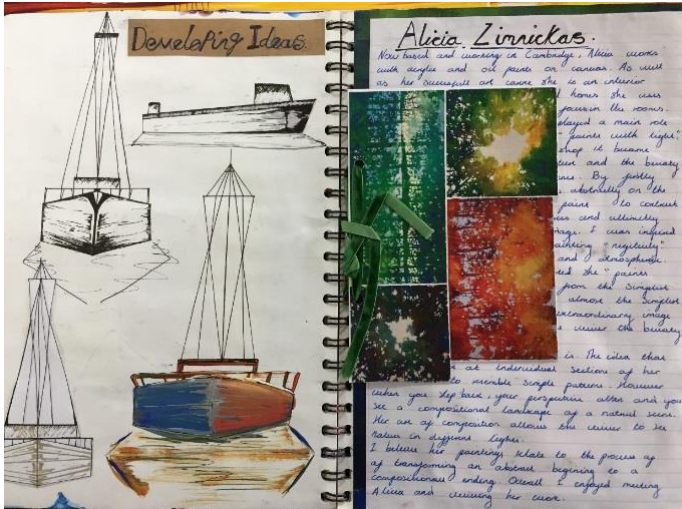 Developing Ideas.
Alicia Zinnickas.
Now based and working in Cambridge, Alicia works
with acrylic and oil paints on canvas. As well
as her successful art she is an interior
homes she uses
in the rooms.
played a main role
"paints with light".
shop it became
and the beauty
By firstly
abstractly on the
paint to contrast
and ultimately
I was inspired
"
and atmospheric.
she "paints
from the simplest
almost the simplest
extraordinary image
the beauty
is. The idea that
at individual sections of her
to resemble simple patterns. However
when you step back, your perspective alters and you
see a compositional landscape of a natural scene.
Her art of composition allows the viewer to see
nature in different lights.
I believe her paintings relate to the process of
of transforming an abstract beginning to a
compositional ending. Overall I enjoyed meeting
Alicia and viewing her work.